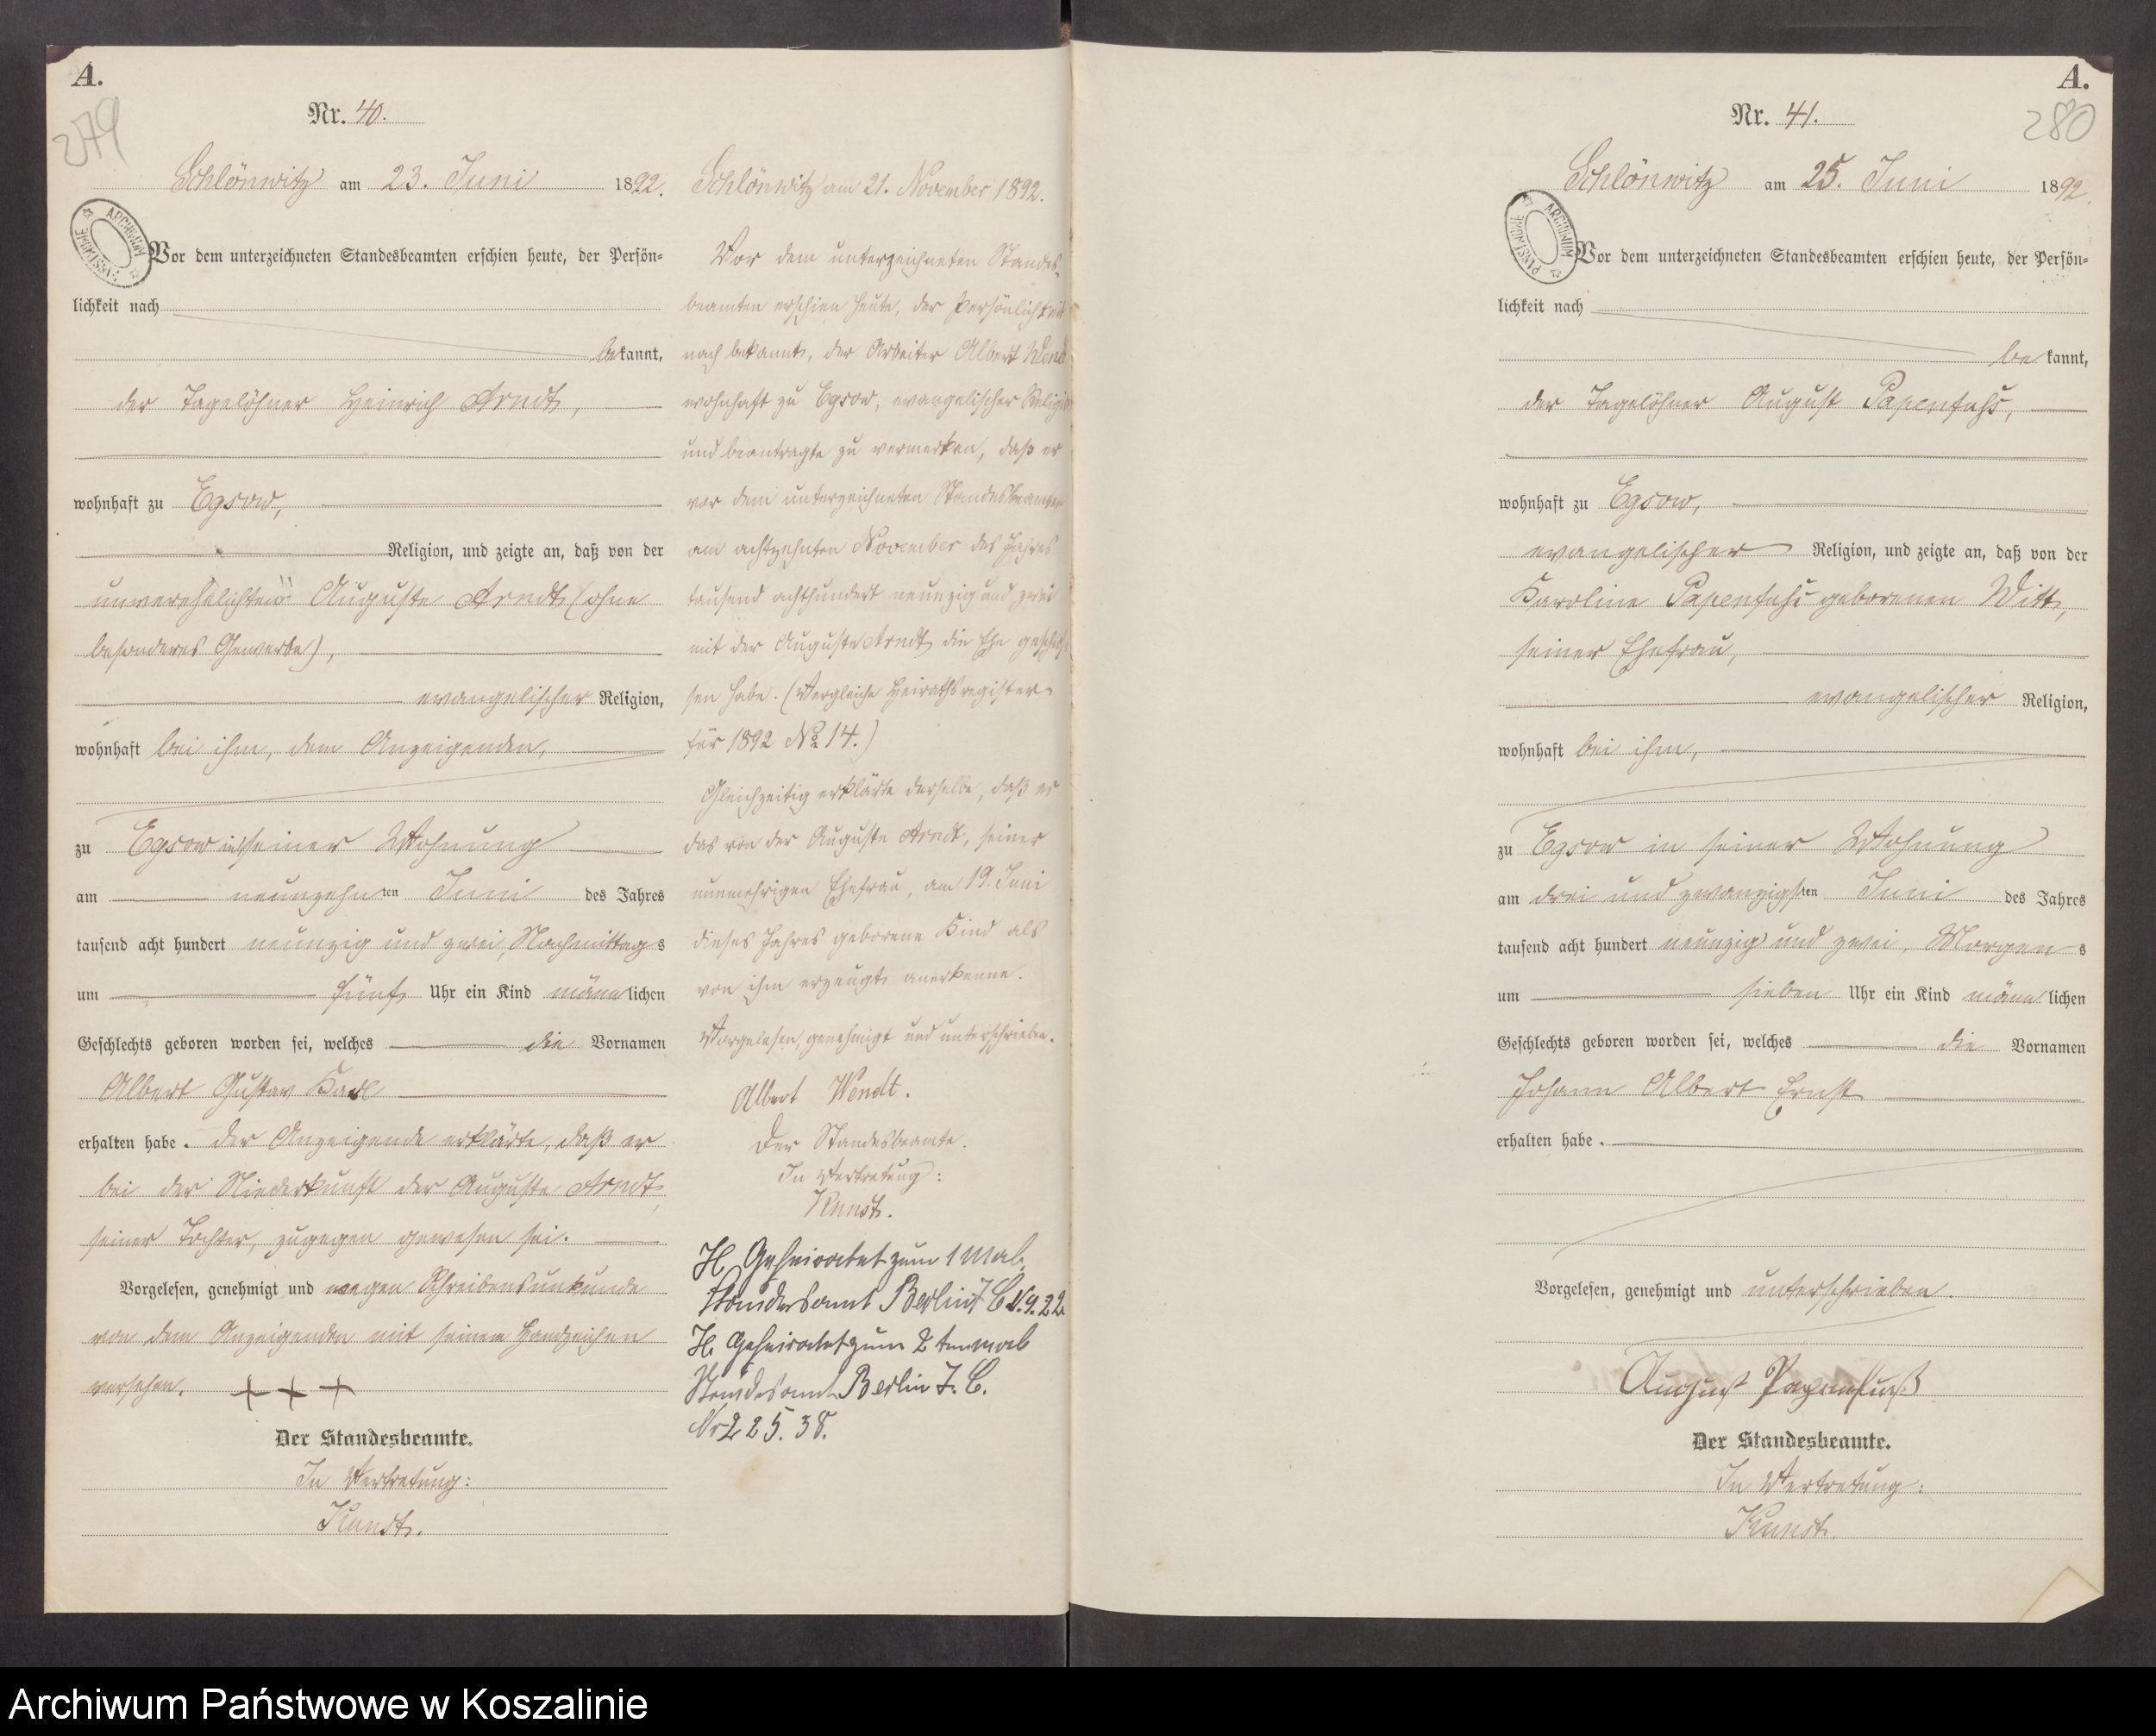 A.
279
Nr. 40.
Schlönwitz am 23. Juni 1892.
Vor dem unterzeichneten Standesbeamten erschien heute, der Persön-
lichkeit nach
bekannt,
der Tagelöhner Heinrich Arndt,
wohnhaft zu Egsow,
Religion, und zeigte an, daß von der
unverehelichten Auguste Arndt (ohne
besonderes Gewerbe),
evangelischer Religion,
wohnhaft bei ihm, dem Anzeigenden,
zu Egsow in seiner Wohnung
am neunzehnten Juni des Jahres
tausend acht hundert neunzig und zwei, Nachmittags
um fünf Uhr ein Kind männlichen
Geschlechts geboren worden sei, welches die Vornamen
Albert Gustav Karl
erhalten habe. Der Anzeigende erklärte, daß er
bei der Niederkunft der Auguste Arndt,
seiner Tochter, zugegen gewesen sei.
Vorgelesen, genehmigt und wegen Schreibensunkunde
von dem Anzeigenden mit seinem Handzeichen
versehen. + + +
Der Standesbeamte.
In Vertretung:
Kunst.
Schlönwitz am 21. November 1892.
Vor dem unterzeichneten Standes-
beamten erschien heute, der Persönlichkeit
nach bekannt, der Arbeiter Albert Wendt
wohnhaft zu Egsow, evangelischer Religion
und beantragte zu vermerken, daß er
vor dem unterzeichneten Standesbeamten
am achtzehnten November des Jahres
tausend achthundert neunzig und zwei
mit der Auguste Arndt die Ehe geschlos-
sen habe. (Vergleiche Heirathsregister
für 1892 No 14.)
Gleichzeitig erklärte derselbe, daß er
das von der Auguste Arndt, seiner
nunmehrigen Ehefrau, am 19. Juni
dieses Jahres geborene Kind als
von ihm erzeugt anerkenne.
Vorgelesen, genehmigt und unterschrieben.
Albert Wendt.
Der Standesbeamte.
In Vertretung:
Kunst.
Geheiratet zum 1 mal,
Standesamt Berlin
Geheiratet zum 2 tenmal
Standesamt Berlin
Nr 225.38.
A.
280
Nr. 41.
Schlönwitz am 25. Juni 1892.
Vor dem unterzeichneten Standesbeamten erschien heute, der Persön-
lichkeit nach
bekannt,
der Tagelöhner August Papenfuhs,
wohnhaft zu Egsow,
evangelischer Religion, und zeigte an, daß von der
Karoline Papenfuhs geborenen Witt,
seiner Ehefrau,
evangelischer Religion,
wohnhaft bei ihm,
zu Egsow in seiner Wohnung
am drei und zwanzigsten Juni des Jahres
tausend acht hundert neunzig und zwei, Morgens
um sieben Uhr ein Kind männlichen
Geschlechts geboren worden sei, welches die Vornamen
Johann Albert Ernst
erhalten habe.
Vorgelesen, genehmigt und unterschrieben.
August Papenfuß
Der Standesbeamte.
In Vertretung:
Kunst.
Archiwum Państwowe w Koszalinie